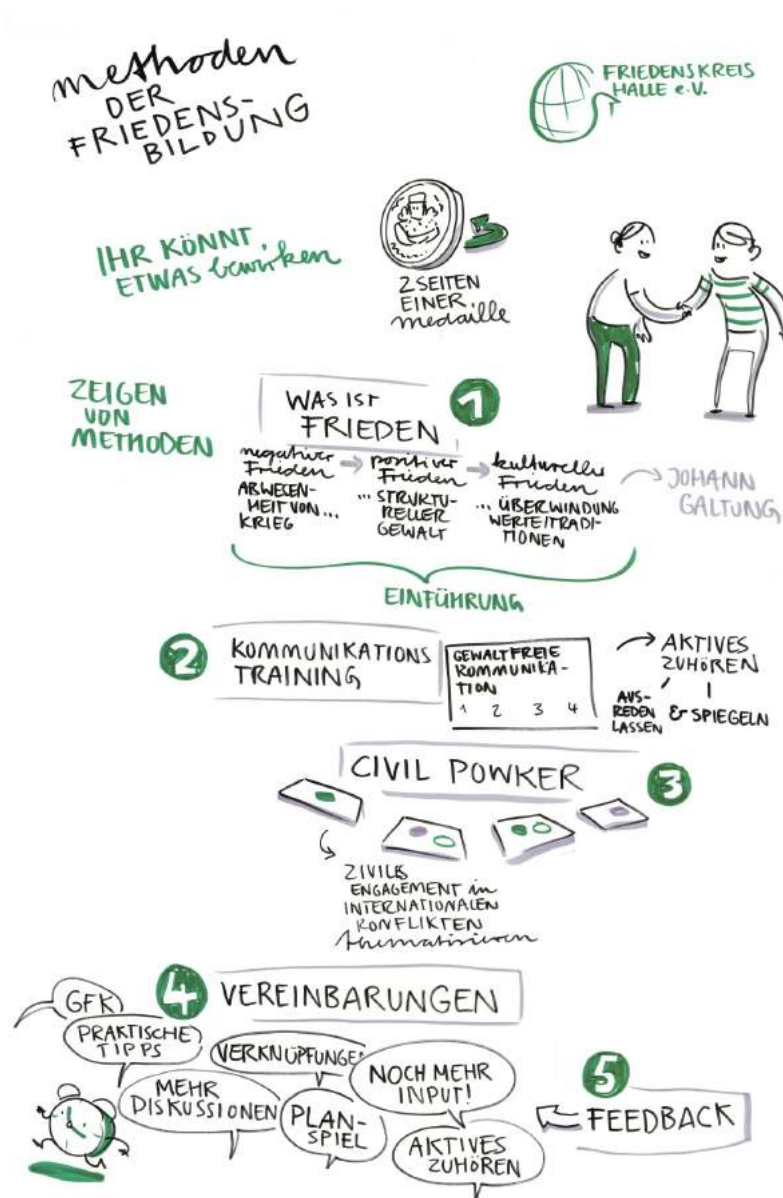 methoden
DER
FRIEDENS-
BILDUNG
FRIEDENSKREIS
HALLE e.V.
IHR KÖNNT
ETWAS bewirken
2 SEITEN
EINER
medaille
ZEIGEN
VON
METHODEN
WAS IST
FRIEDEN
1
negativer
Frieden
ABWESEN-
HEIT VON ...
KRIEG
positiver
Frieden
... STRUKTU-
RELLER
GEWALT
kultureller
Frieden
... ÜBERWINDUNG
WERTE/TRADI-
TIONEN
JOHANN
GALTUNG
EINFÜHRUNG
2
KOMMUNIKATIONS
TRAINING
GEWALTFREIE
KOMMUNIKA-
TION
1 2 3 4
AKTIVES
ZUHÖREN
AUS-
REDEN
LASSEN
& SPIEGELN
CIVIL POWKER
3
ZIVILES
ENGAGEMENT in
INTERNATIONALEN
KONFLIKTEN
thematisieren
4
VEREINBARUNGEN
GFK
PRAKTISCHE
TIPPS
VERKNÜPFUNGEN
NOCH MEHR
INPUT!
MEHR
DISKUSSIONEN
PLAN-
SPIEL
AKTIVES
ZUHÖREN
5
FEEDBACK